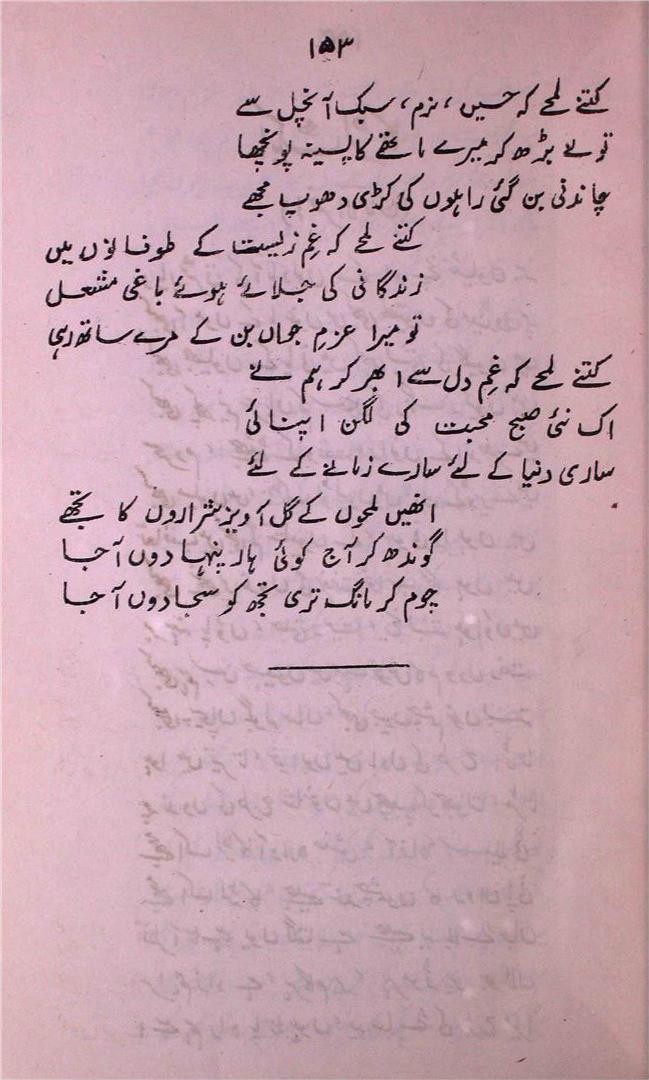 ۱۵۳
کتنے لمحے کہ حسیں، نرم، سبک آنچل سے
تو نے بڑھ کر میرے ماتھے کا پسینہ پونچھا
چاندنی بن گئی راہوں کی کڑی دھوپ مجھے
کتنے لمحے کہ غمِ زیست کے طوفانوں میں
زندگانی کی جلائے ہوئے باغی مشعل
تو میرا عزمِ جواں بن کے مرے ساتھ رہی
کتنے لمحے کہ غمِ دل سے ابھر کر ہم نے
اک نئی صبح محبت کی لگن اپنائی
ساری دنیا کے لئے سارے زمانے کے لئے
انھیں لمحوں کے گل آویز شراروں کا تجھے
گوندھ کر آج کوئی ہار پنہا دوں آ جا
چوم کر مانگ تری تجھ کو سجا دوں آ جا